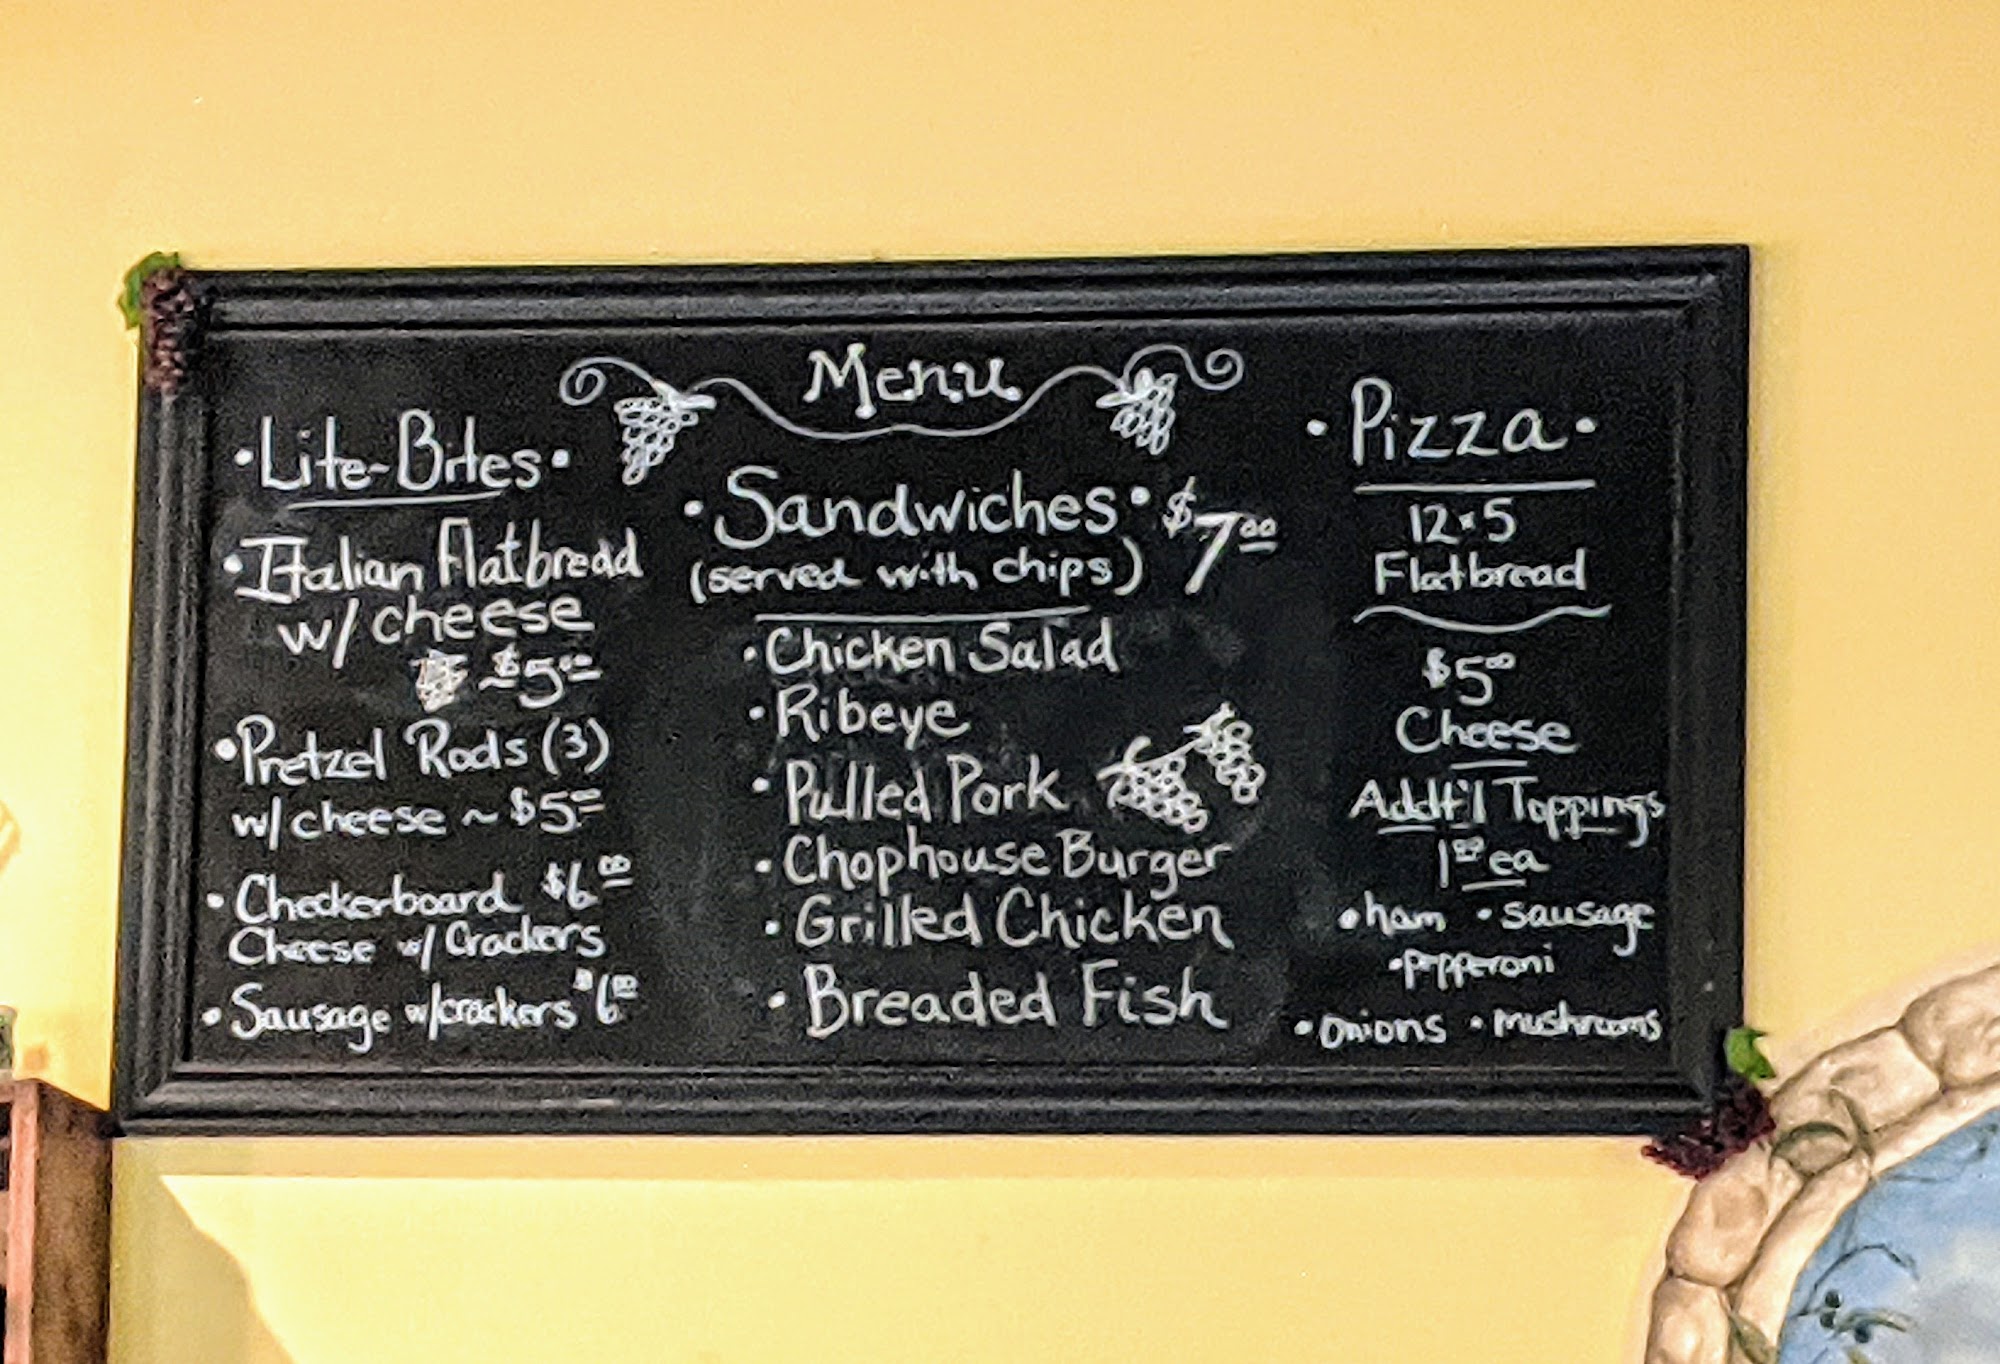 Menu
• Lite-Bites •
• Italian Flatbread
w/ cheese
~$5.00
• Pretzel Rods (3)
w/ cheese ~ $5.00
• Checkerboard $6.00
Cheese w/ Crackers
• Sausage w/crackers $6.00
• Sandwiches • $7.00
(served with chips)
• Chicken Salad
• Ribeye
• Pulled Pork
• Chophouse Burger
• Grilled Chicken
• Breaded Fish
• Pizza •
12x5
Flatbread
$5.00
Cheese
Addt'l Toppings
1.00 ea
• ham • sausage
• pepperoni
• onions • mushrooms